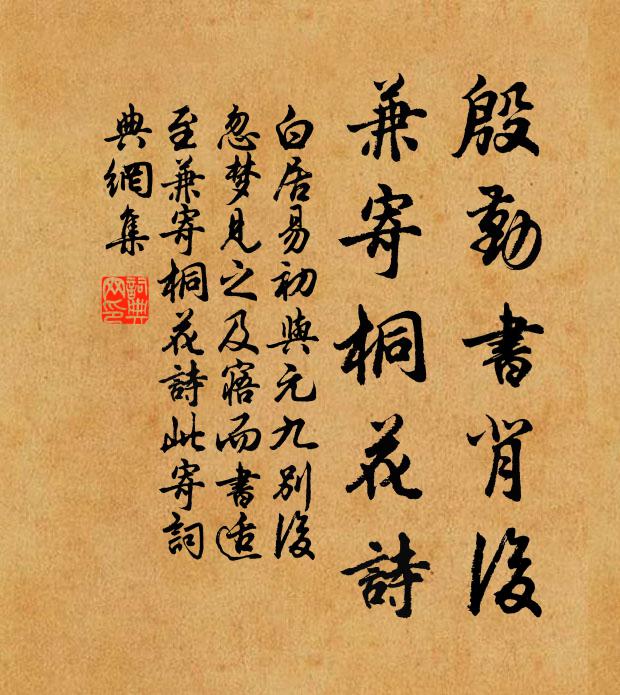 殷勤書背後
兼寄桐花詩
白居易初與元九別後
忽梦見之及寤而書适
至兼寄桐花詩此寄詞
典網集
詞典網印